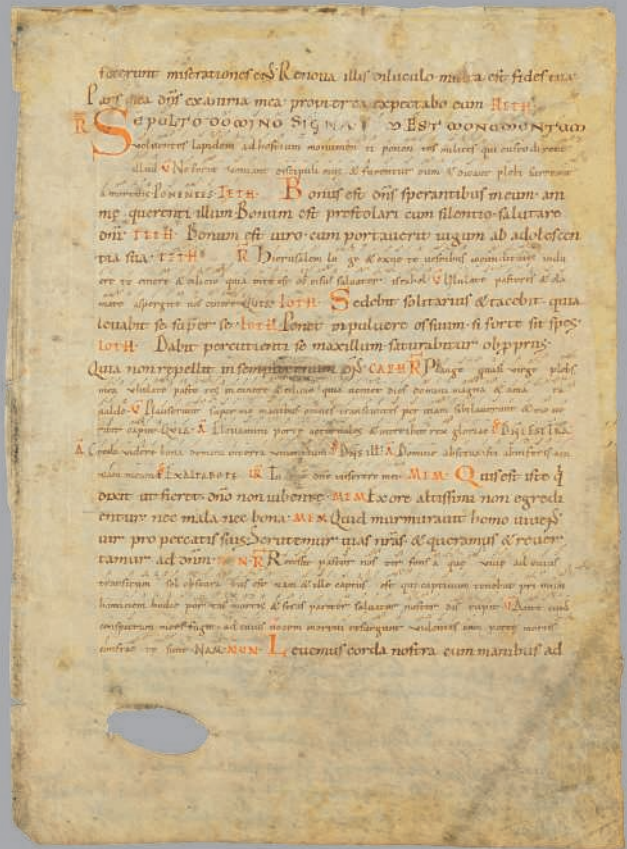 fecerunt miserationes eius Renova illis diluculo multa est fides tua
Pars mea dns exanima mea propterea expectabo eum HETH
R SEPULTO DOMINO SIGNAT EST MONUMENTUM
volventes lapidem ad hostium monumenti ponentes milites qui custodirent
illud V Ne forte veniant discipuli eius & furentur eum & dicant plebi surrexit
a mortuis PONENTES TETH Bonus est dns sperantibus in eum ani
me querenti illum Bonum est prestolari cum silentio salutare
dni TETH Bonum est viro cum portaverit iugum ab adolescen
tia sua TETH R Hierusalem lu ge & exue te vestibus iocunditatis indu
ere te cinere & cilicio quia in te est occisus salvator israhel V Ululate pastores & cla
mate aspergite vos cinere IOTH Sedebit solitarius & tacebit quia
levabit se super se IOTH Ponet in pulvere os suum si forte sit spes
IOTH Dabit percutienti se maxillam saturabitur obprobriis
Quia non repellit in sempiternum dns CAPH R Plange quasi virgo plebs
mea ululate pastores in cinere & cilicio quia veniet dies domini magna & amara
valde V Plauserunt super me manibus omnes transeuntes per viam sibilaverunt & mo ve
runt caput QUIA A Elevamini porte aeternales & introibit rex gloriae DNI EST TERRA
A Credo videre bona domini in terra viventium DNS ILL A Domine abstraxisti ab inferis ani
mam meam EXALTABO TE MEM Quis est iste q
dixit ut fieret dno non iubente MEM Ex ore altissimi non egredi
entur nec mala nec bona MEM Quid murmuravit homo vivens
vir pro peccatis suis Scrutemur vias nras & queramus & rever
tamur ad dnm NUN R Recessit pastor nos ter fons a que vive ad cuius
transitum sol obscura tus est nam & ille captus est qui captivum tenebat primum
hominem hodie portas mortis & seras pariter salvator noster dis rupit V Ante cuius
conspectum mors fugit ad cuius vocem mortui resurgunt videntes eum porte mortis
confrac te sunt NAM NUN Levemus corda nostra cum manibus ad